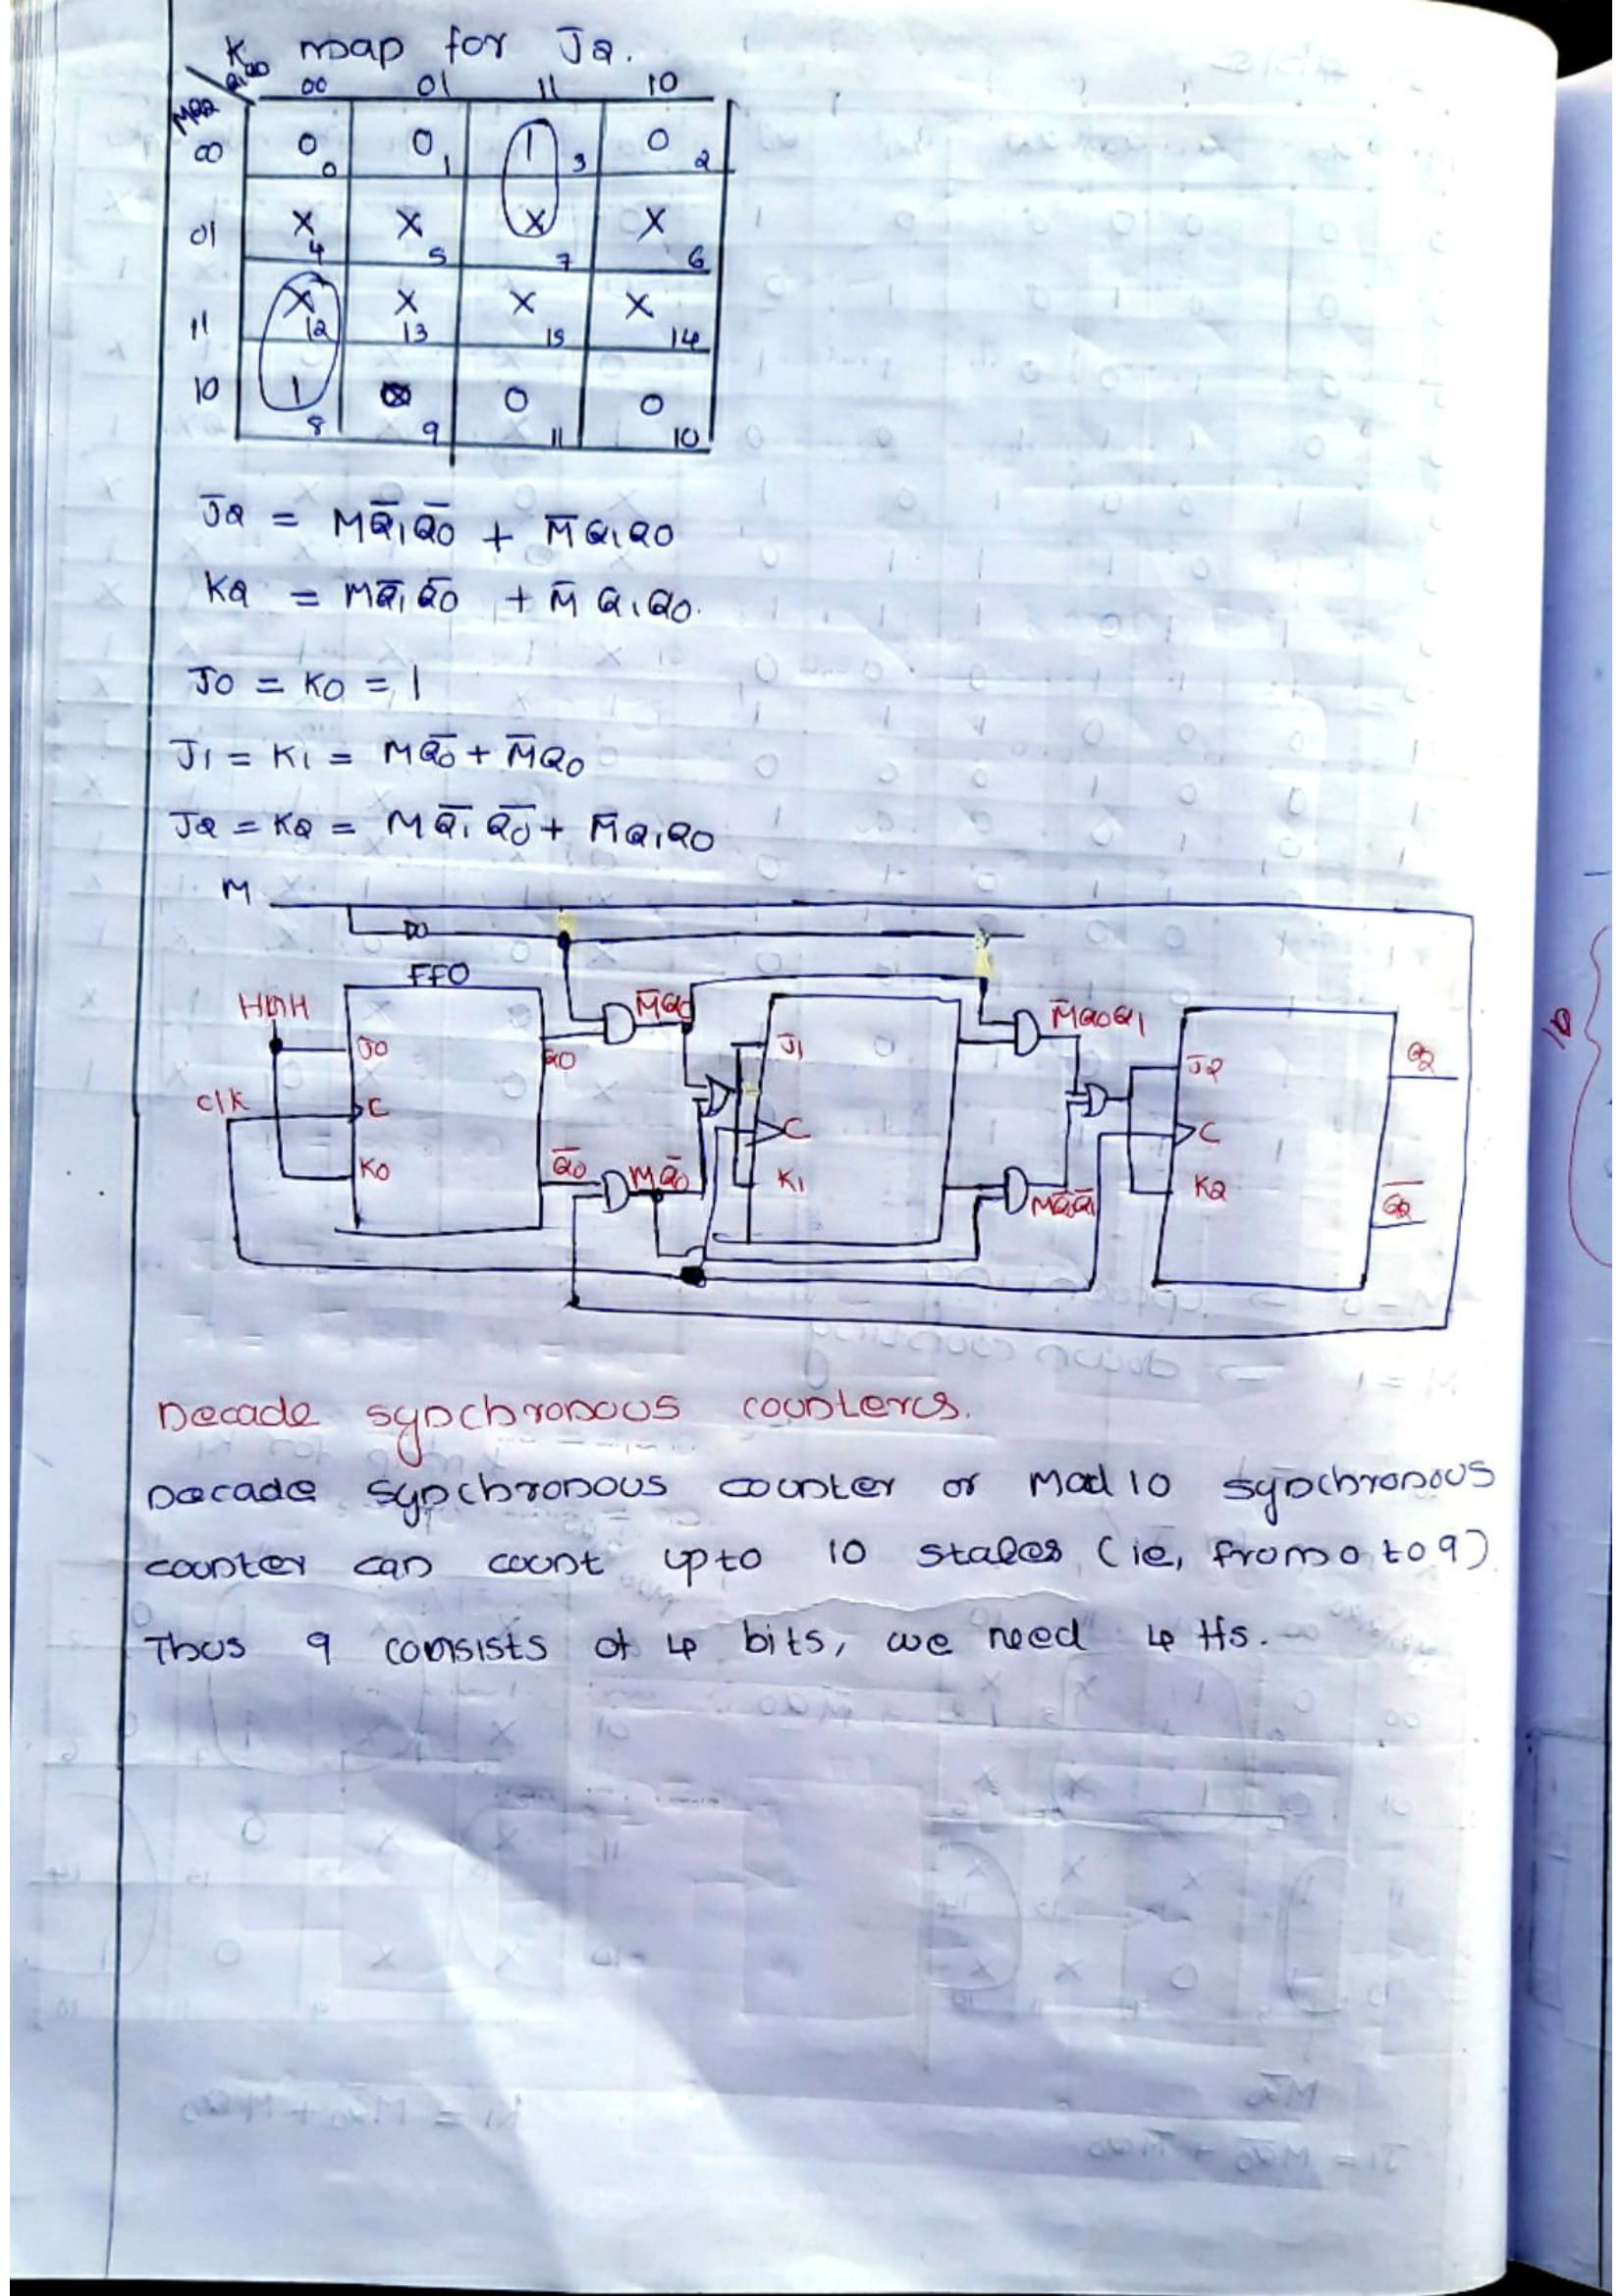 K map for J2.
Q1Q0
MQ2
00 01 11 10
00 0 0 0 1 1 3 0 2
01 X 4 X 5 X 7 X 6
11 X 12 X 13 X 15 X 14
10 1 8 9 0 11 0 10
J2 = MQ̅1Q̅0 + M̅Q1Q0
K2 = MQ̅1Q̅0 + M̅Q1Q0.
J0 = K0 = 1
J1 = K1 = MQ̅0 + M̅Q0
J2 = K2 = MQ̅1 Q̅0 + M̅Q1Q0
M
FF0
HIGH
M̅Q0
M̅Q0Q1
J0
Q0
J1
J2
Q2
Clk
C
C
C
K0
Q̅0
MQ̅0
K1
MQ̅0Q̅1
K2
Q̅2
Decade synchronous counters.
Decade synchronous counter or Mod 10 synchronous
counter can count upto 10 states (ie, from 0 to 9)
Thus 9 consists of 4 bits, we need 4 ffs.